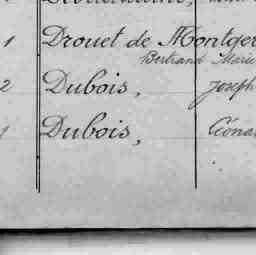 1 Drouet de Montger
Bertrand Marie
2 Dubois, Joseph
1 Dubois,